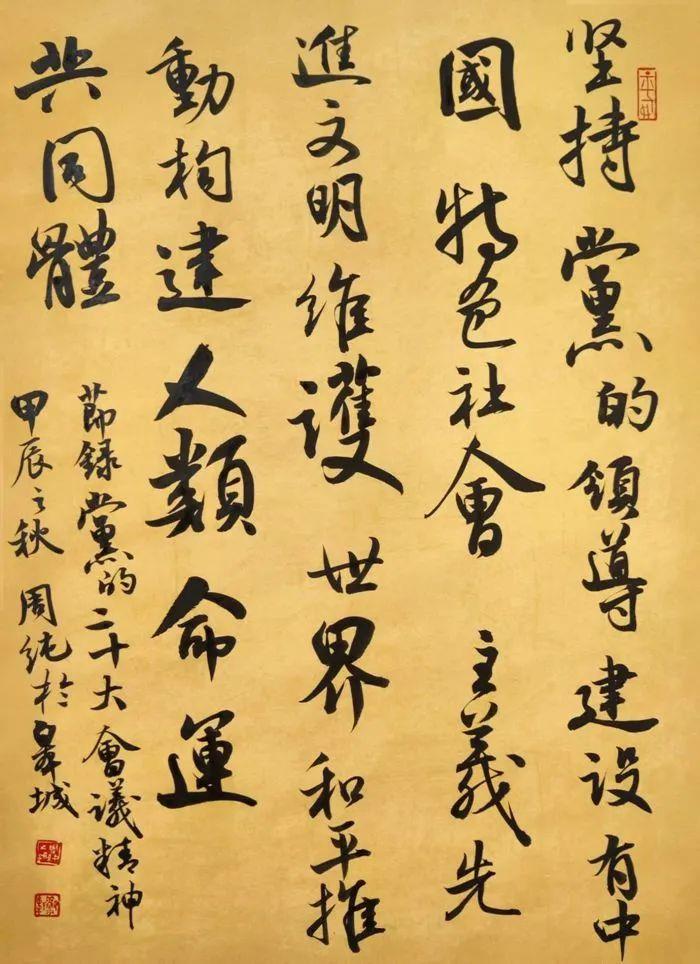 坚持黨的領導建设有中
國特色社會主義先
進文明維護世界和平推
動构建人類命運
共同體
節録黨的二十大會議精神
甲辰之秋周纯於皋城